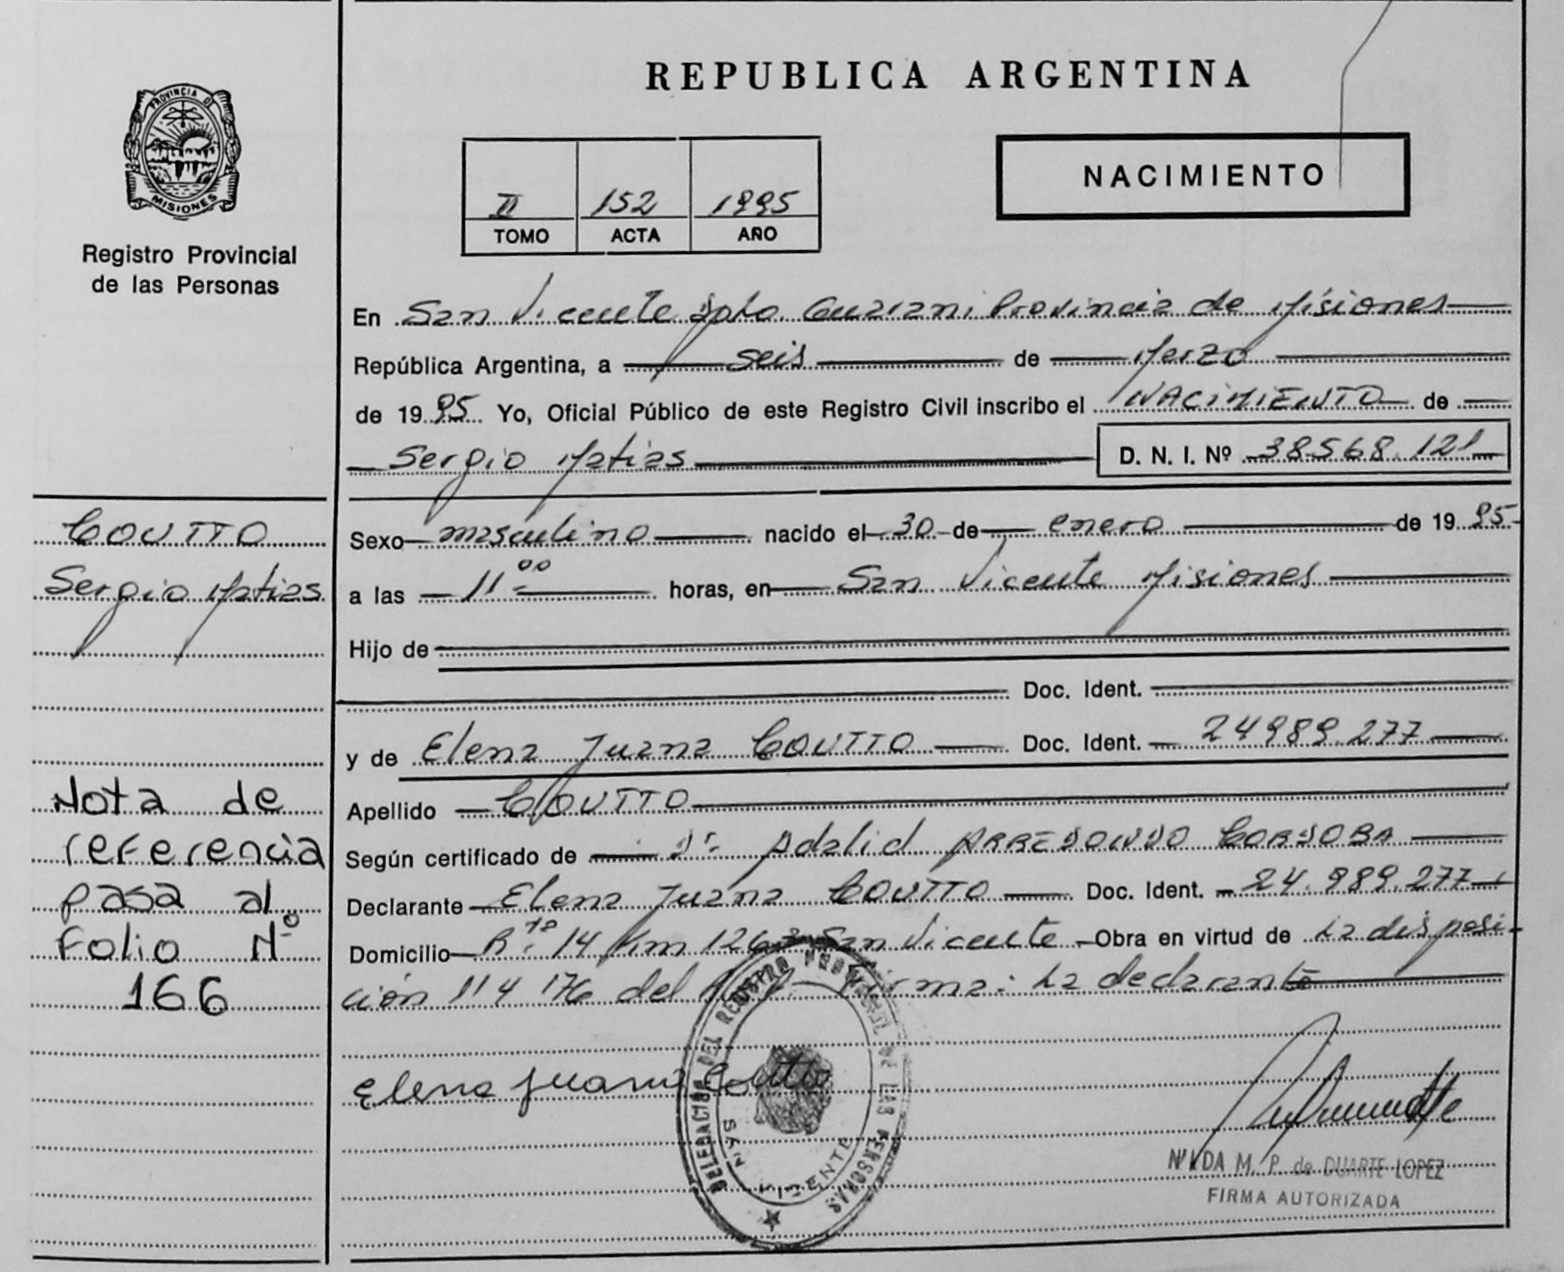 REPUBLICA ARGENTINA
PROVINCIA D
MISIONES
Registro Provincial
de las Personas
II 152 1995
TOMO ACTA AÑO
NACIMIENTO
En San Vicente Dpto. Guarani Provincia de Misiones
República Argentina, a seis de Marzo
de 1995 Yo, Oficial Público de este Registro Civil inscribo el NACIMIENTO de
Sergio Matias D. N. I. Nº 38568.121
COUTTO
Sergio Matias
Sexo masculino nacido el 30 de enero de 1995
a las 11 00 horas, en San Vicente Misiones
Hijo de
Doc. Ident.
y de Elena Juana COUTTO Doc. Ident. 24989.277
Apellido COUTTO
Según certificado de Dr. Adalid ARREDONDO CORDOBA
Declarante Elena Juana COUTTO Doc. Ident. 24.989.277
Domicilio R. 14 Km 126 San Vicente Obra en virtud de La disposi-
ción 114/76 del Firma: La declarante
Nota de
referencia
pasa al
Folio Nº
166
Elena Juana Coutto
DELEGACION DEL REGISTRO PROVINCIAL DE LAS PERSONAS
SAN VICENTE
NILDA M. P. de DUARTE LOPEZ
FIRMA AUTORIZADA